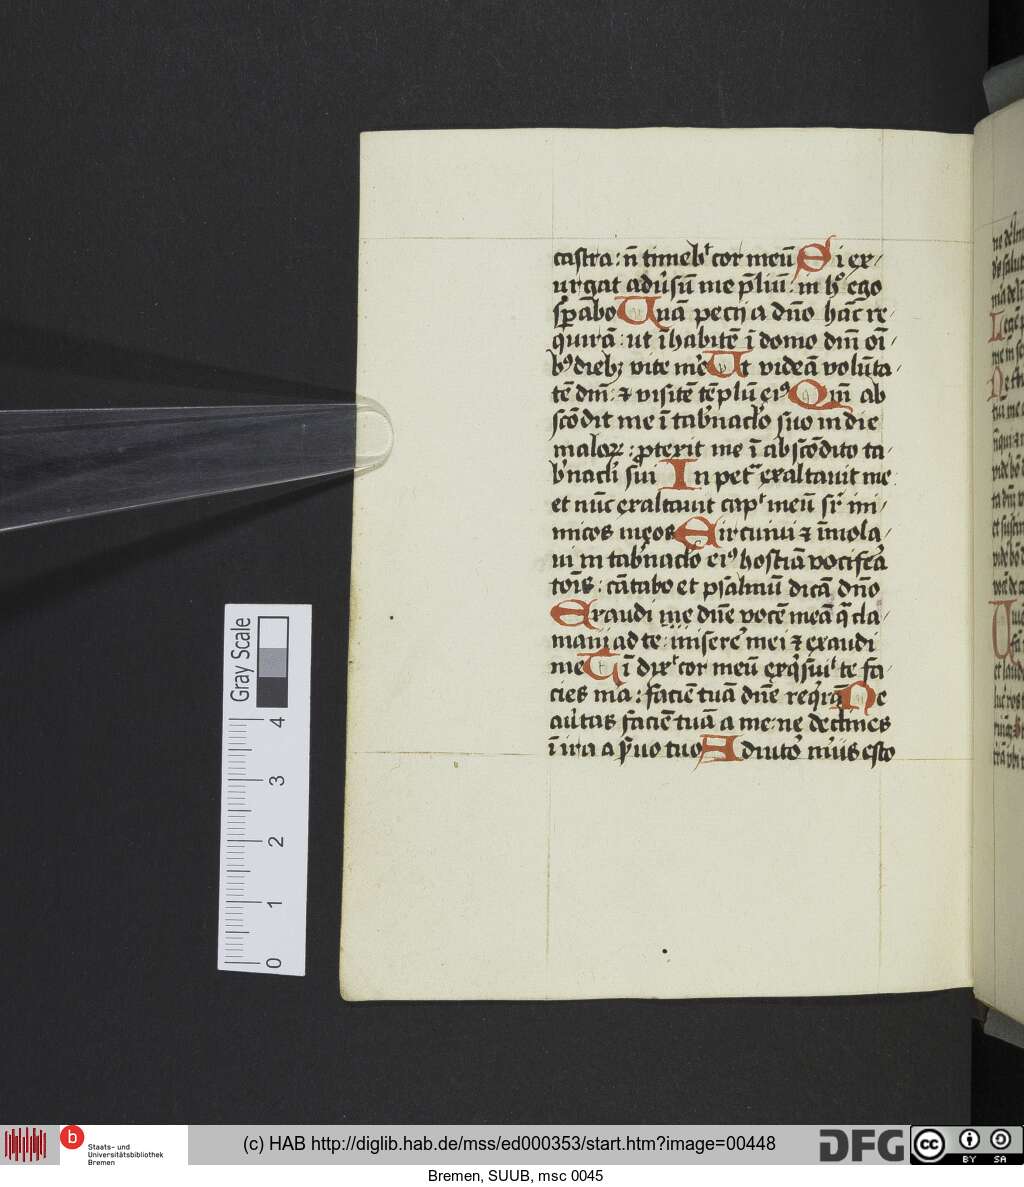 castra: n̄ timebᵗ cor meū Si ex/
urgat adu͛sū me p̄liū: in h° ego
sꝑabo Unā pecij a dn̄o hāc re
quirā: ut ī habitē ī domo dn̄i oī
bꝰ diebꝫ vite me͛ Ut videā volūta/
tē dn̄i: ⁊ visitē tēplū eiꝰ Qm̄ ab
scōdit me ī tab͛nac̄lo suo in die
maloꝝ: ꝓtexit me ī abscōdito ta/
b͛nacl̄i sui In petᵃ exaltauit me
et nūc exaltauit capᵗ meū sr͛ ini/
micos meos Circuiui ⁊ īmola/
ui in tab͛nac̄lo eiꝰ hostiā vocife͛a
toīs: cātabo et psalmū dicā dn̄o
Exaudi me dn̄e vocē meā q̄ cla/
maui ad te: misere͛ mei ⁊ exaudi
me Tī dixᵗ cor meū exqⁱsiuiᵗ te fa/
cies ma: faciē tuā dn̄e reqⁱrā Ne
au͛tas faciē tuā a me: ne declines
ī ira a s͛uo tuo Adiuto͛ m͛us esto
ne de
Gray Scale
4
3
2
1
0
b
Staats- und
Universitätsbibliothek
Bremen
(c) HAB http://diglib.hab.de/mss/ed000353/start.htm?image=00448
DFG
cc
BY SA
Bremen, SUUB, msc 0045